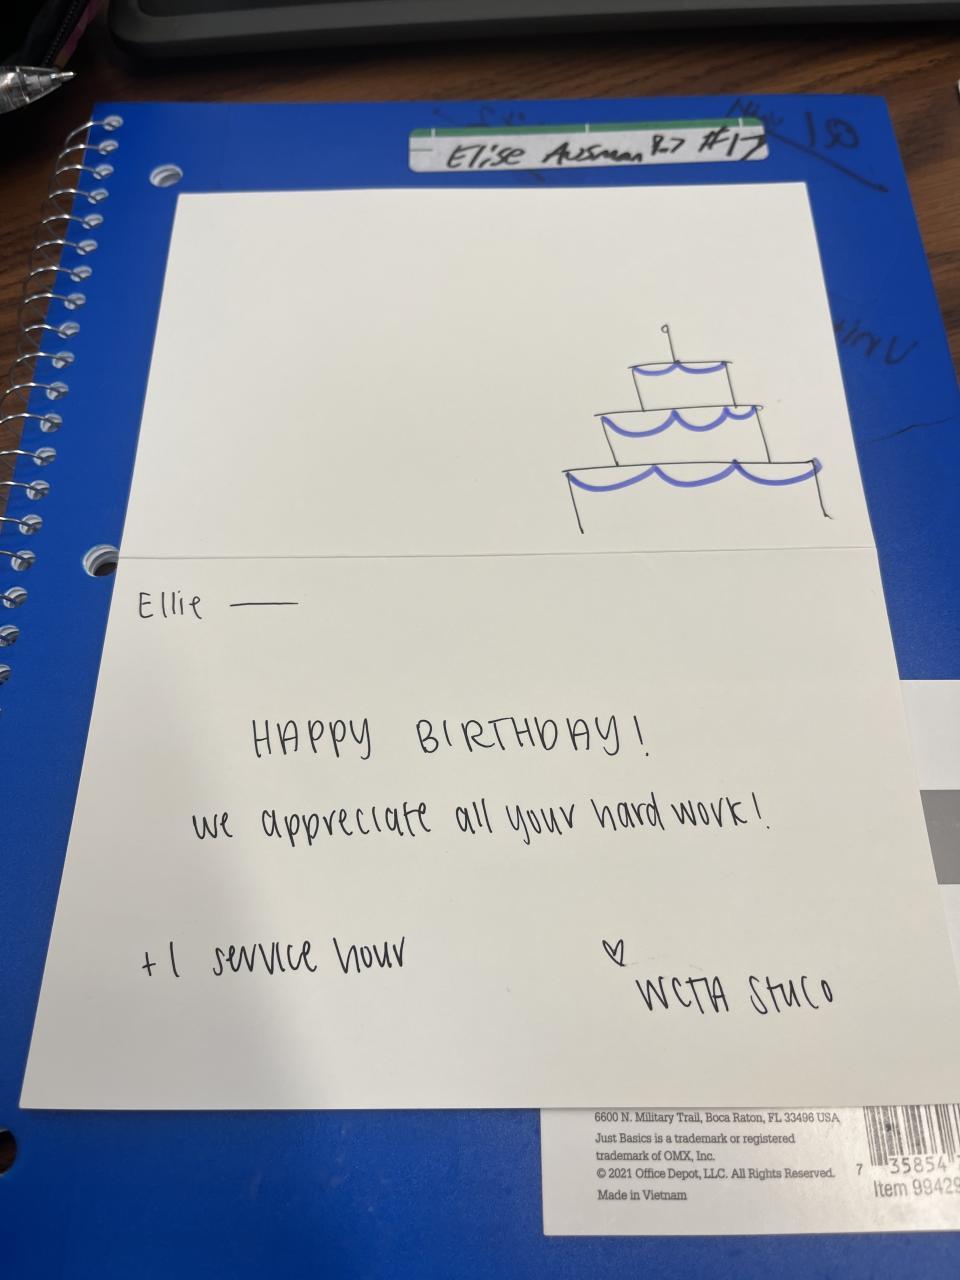 Elise Ausman P.7 #17
Ellie —
HAPPY BIRTHDAY!
we appreciate all your hard work!
+1 service hour
♡
WCTA StuCo
6600 N. Military Trail, Boca Raton, FL 33496 USA
Just Basics is a trademark or registered
trademark of OMX, Inc.
© 2021 Office Depot, LLC. All Rights Reserved.
Made in Vietnam
7 35854
Item 99429